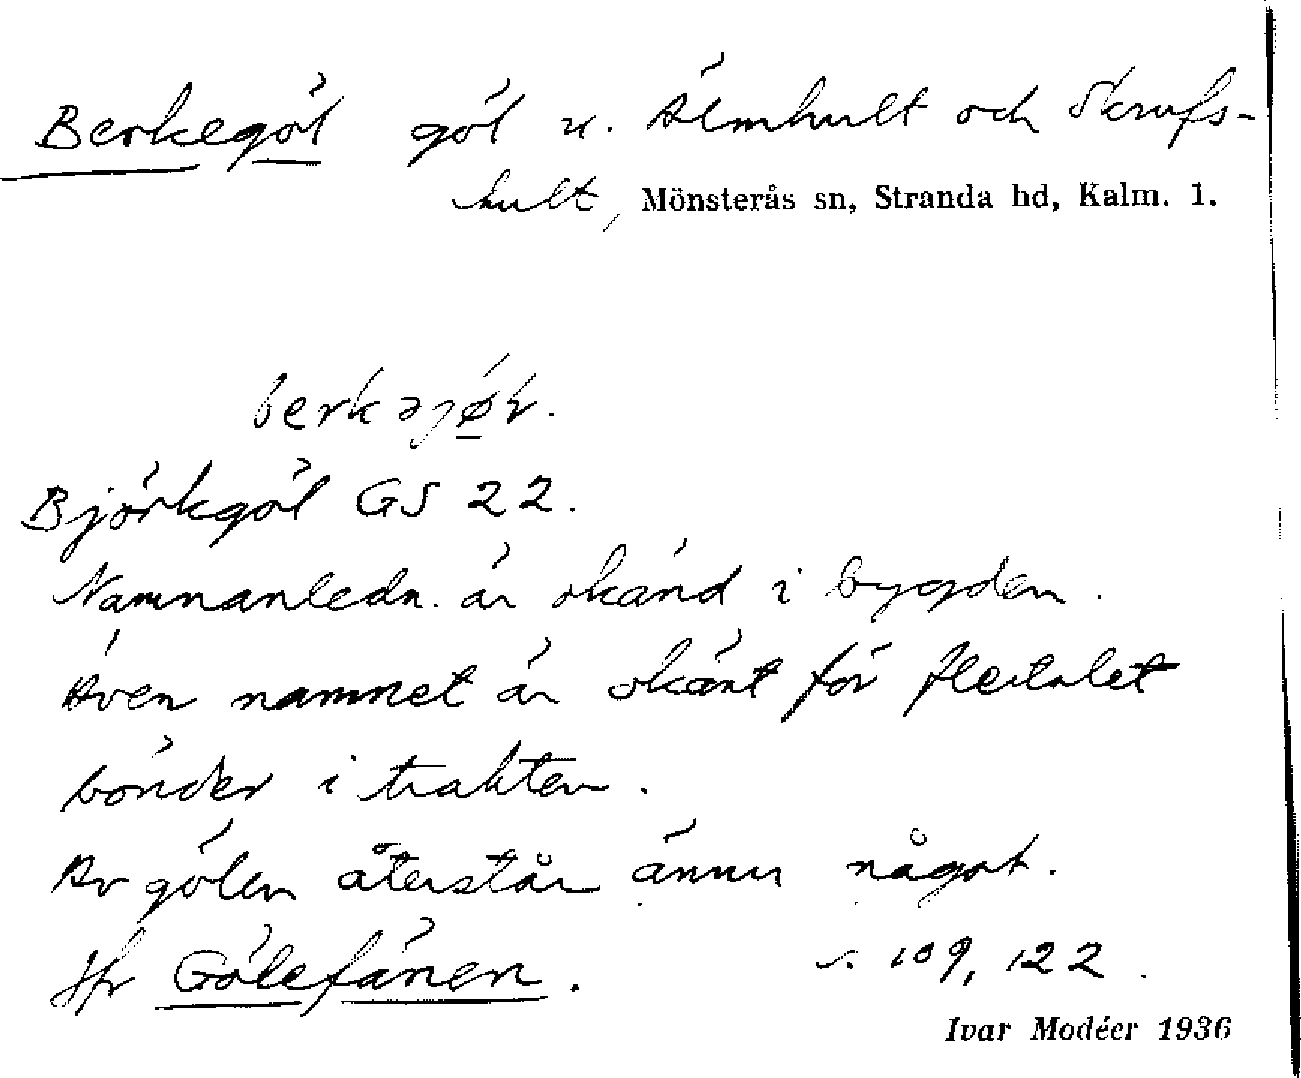 Berkegöl göl u. Älmhult och Skrufs-
hult, Mönsterås sn, Stranda hd, Kalm. 1.
Björkgöl GS 22.
Namnanledn. är okänd i bygden.
Även namnet är okänt för flertalet
bönder i trakten.
Av gölen återstår ännu något.
Jfr Gölefänen. s. 109, 122.
Ivar Modéer 1936